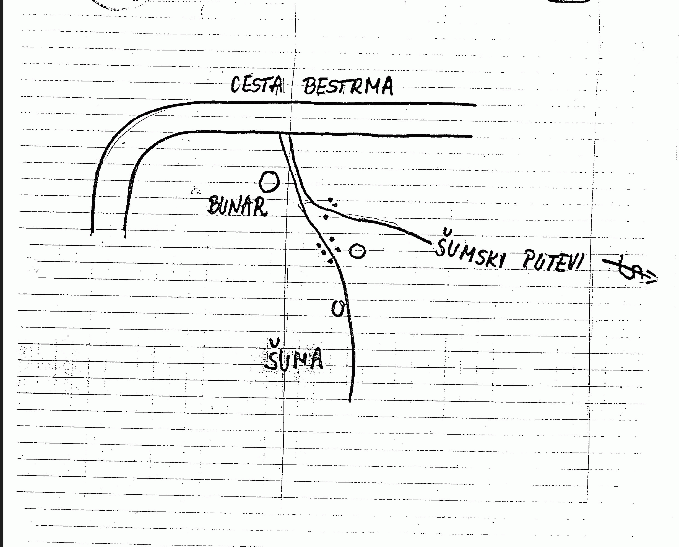 CESTA BESTRMA
BUNAR
ŠUMSKI PUTEVI
ŠUMA